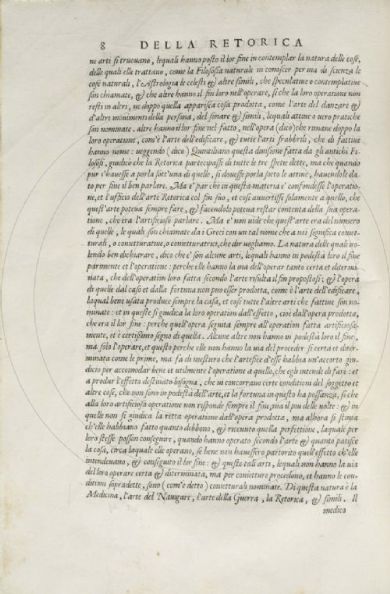 8 DELLA RETORICA
ne arti si truouano, lequali hanno posto il lor fine in contemplar la natura delle cose,
delle quali elle trattano, come la Filosofia naturale in conoscer per uia di scienza le
cose naturali, l'Astrologia le celesti & altre simili, che speculatiue o contemplatiue
son chiamate, & che altre hanno il fin loro nell'operare, si che la loro operatione non
resti in altri, ne doppo quella apparisca cosa prodotta, come l'arte del danzare &
d'altri mouimenti della persona, del sonare & simili, lequali attiue o uero pratiche
son nominate. Altre hanno il lor fine nel fatto, nell'opera (dico) che rimane doppo la
loro operatione, com'è l'arte dell'edificare, & tutte l'arti frabbrili, che di fattiue
hanno nome: ueggendo (dico) Quintiliano questa diuisione fatta da gli antichi Fi-
losofi, giudicò che la Retorica partecipasse di tutte le tre spetie dette, ma che quando
pur s'hauesse a porla sott'una di quelle, si douesse porla sotto le attiue, hauendole da-
to per fine il ben parlare. Ma è par che in questa materia e' confondesse l'operatio-
ne, et l'uffitio dell'arte Retorica col fin suo, et così auuertisse solamente a quello, che
quest'arte poteua sempre fare, & facendolo poteua restar contenta della sua opera-
tione, che era l'artifitiosi parlare. Ma e' non uide che quest'arte era del numero
di quelle, le quali son chiamate da i Greci con un tal nome che a noi significa coniet-
turali, o conietturatiue, o conietturatrici, che dir uogliamo. La natura delle quali uo-
lendo ben dichiarare, dico che e' son alcune arti, lequali hanno in podestà loro il fine
parimente et l'operatione: perche elle hanno la uia dell'operar tanto certa et determi-
nata, che dell'operation loro fatta secondo l'arte resulta il fin propostosi: & l'opera
di quelle dal caso et dalla fortuna non può esser prodotta, come è l'arte dell'edificare,
laqual bene usata produce sempre la casa, et così tutte l'altre arti che fattiue son no-
minate: et in queste si giudica la loro operation dall'effetto, cioè dall'opera prodotta,
che era il lor fine: perche quell'opera seguita sempre all'operation fatta artifitiosa-
mente, et è certissimo segno di quella. Alcune altre non hanno in podestà loro il fine,
ma solo l'operare, et questo perche elle non hanno la uia del proceder sì certa et deter-
minata come le prime, ma fa di mestiero che l'artefice d'esse habbia un'accorto giu-
dicio per accomodar bene et utilmente l'operatione a quello, che egli intende di fare: et
a produr l'effetto destinato bisogna, che in concorrano certe conditioni del soggetto et
altre cose, che non sono in podestà dell'arte, et la fortuna in questo ha possanza, sì che
alla loro artifitiosa operatione non risponde sempre il fine, ma il più delle uolte: & in
quelle non si giudica la retta operatione dell'opera prodotta, ma allhora si stima
ch'elle habbiano fatto quanto debbono, & riceuuto quella perfettione, laquale per
loro stesse posson conseguire, quando hanno operato secondo l'arte & quanto patisce
la cosa, circa laquale elle operano, se bene non hauessero partorito quell'effetto ch'elle
intendeuano, & conseguito il lor fine: & queste tali arti, lequali non hanno la uia
del loro operare certa & determinata, ma per conietture procedono, et hanno le con-
ditioni sopradette, sono (com'è detto) conietturali nominate. Di questa natura è la
Medicina, l'arte del Nauigare, l'arte della Guerra, la Retorica, & simili. Il
medico